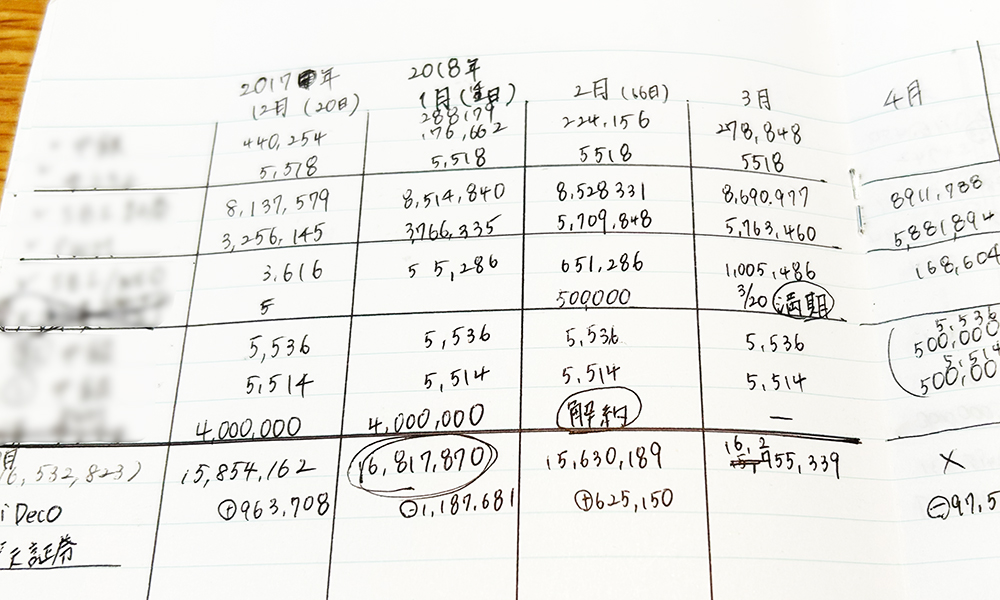 2017年 2018年
12月(20日) 1月( 日) 2月(16日) 3月 4月
288,179
440,254 176,662 224,156 278,848
5,518 5,518 5518 5518
8,137,579 8,514,840 8,528331 8,690,977 8911,788
3,256,145 3766,335 5,709,848 5,763,460 5,881,894
3,616 55,286 651,286 1,005,486 168,604
5 500,000 3/20 満期
5,536 5,536 5,536 5,536 5,536
500,000
5,514 5,514 5,514 5,514 5,514
500,00
4,000,000 4,000,000 解約 —
月
(6,532,823) 15,854,162 16,817,870 15,630,189 16,2 55,339 ×
iDeCo ⊕963,708 ⊖1,187,681 ⊕625,150 ⊖97,5
天証券